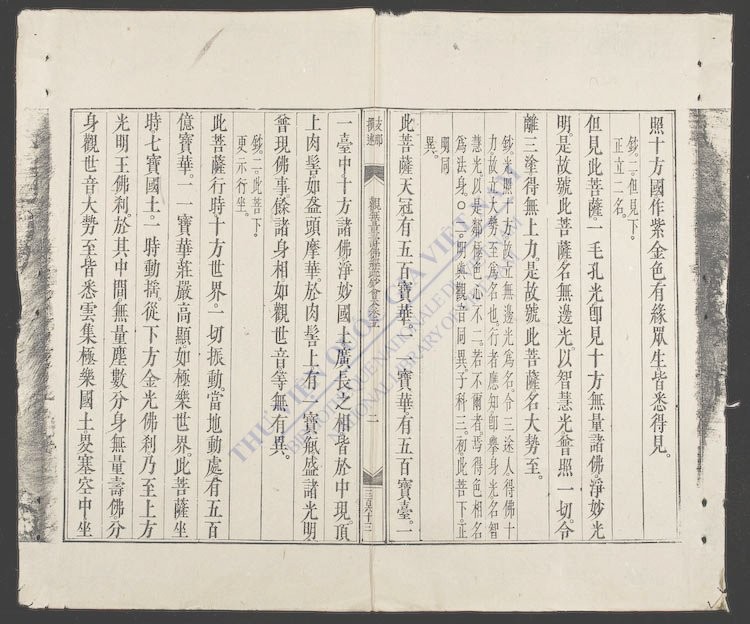 照十方國作紫金色有緣眾生皆悉得見。
鈔二但見下。
正立二名。
但見此菩薩。一毛孔光卽見十方無量諸佛淨妙光
明。是故號此菩薩名無邊光。以智慧光普照一切。令
離三塗得無上力。是故號此菩薩名大勢至。
鈔光照十方故立無邊光爲名。令三途人得佛十
力故立大勢至爲名也。行者應知卽舉身光名智
慧光以是鄰極色心不二。若不爾者焉得色相名
爲法身。〇二。明與觀音同異。子科三。初此菩下。正
明同
異。
此菩薩天冠有五百寶華。一一寶華有五百寶臺。一
支那
撰述
觀無量壽佛經疏鈔會本卷
二
三百六十三
一臺中十方諸佛淨妙國土廣長之相皆於中現。頂
上肉髻如盋頭摩華於肉髻上有一寶缾盛諸光明
普現佛事餘諸身相如觀世音等無有異。
鈔二此菩下。
更示行坐。
此菩薩行時十方世界。一切振動當地動處有五百
億寶華。一一寶華莊嚴高顯如極樂世界。此菩薩坐
時七寶國土。一時動搖。從下方金光佛刹乃至上方
光明王佛刹。於其中間無量塵數分身無量壽佛分
身觀世音大勢至皆悉雲集極樂國土畟塞空中坐
THƯ VIỆN QUỐC GIA VIỆT NAM
BIBLIOTHÈQUE NATIONALE DU VIETNAM
NATIONAL LIBRARY OF VIETNAM